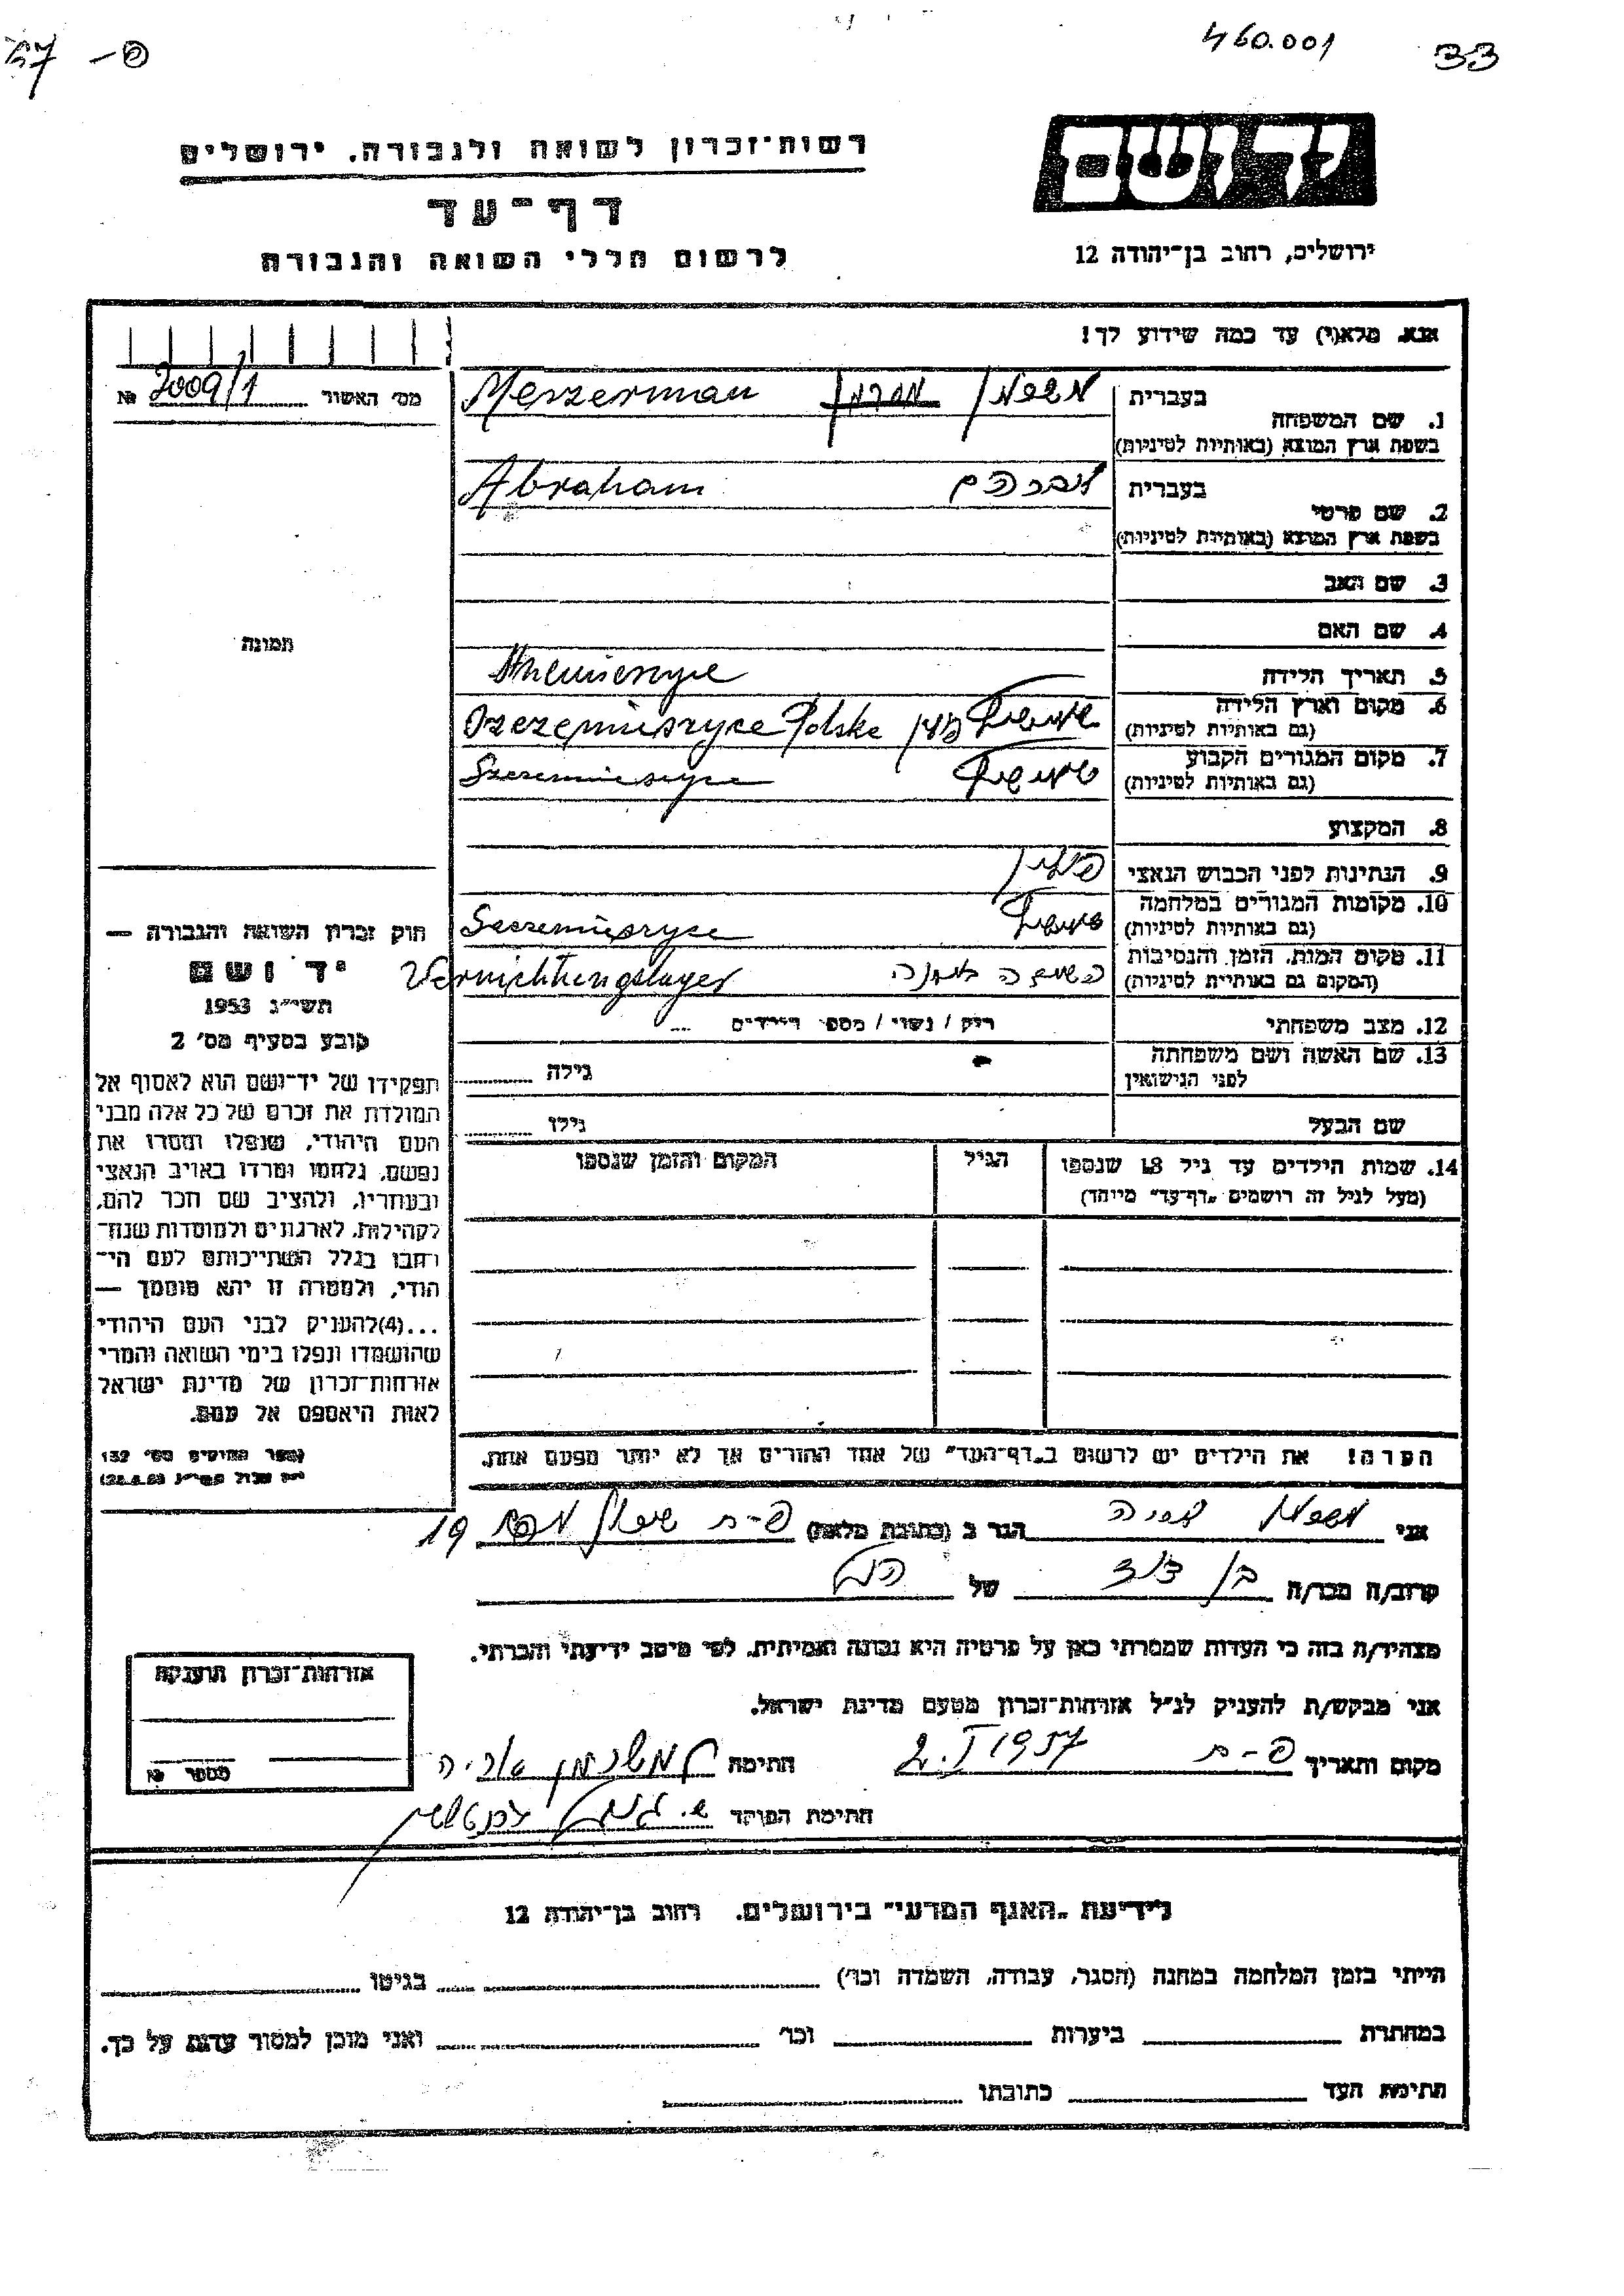 460.001 33
יד ושם
ירושלים, רחוב בן־יהודה 12
רשות־זכרון לשואה ולגבורה. ירושלים
דף־עד
לרשום חללי השואה והגבורה
אנא, מלא(י) עד כמה שידוע לך!
מס׳ האשור 2009/1 №
1. שם המשפחה
בעברית
Meszerman
בשפת ארץ המוצא (באותיות לטיניות)
2. שם פרטי
בעברית אברהם Abraham
בשפת ארץ המוצא (באותיות לטיניות)
3. שם האב
4. שם האם
5. תאריך הלידה
6. מקום וארץ הלידה
(גם באותיות לטיניות) פולין Polska
7. מקום המגורים הקבוע
(גם באותיות לטיניות)
8. המקצוע
9. הנתינות לפני הכבוש הנאצי פולין
10. מקומות המגורים במלחמה
(גם באותיות לטיניות)
11. מקום המות, הזמן והנסיבות
(המקום גם באותיות לטיניות) השמדה במחנה Vernichtungslager
12. מצב משפחתי
רוק / נשוי / מספר הילדים
13. שם האשה ושם משפחתה
לפני הנישואין
גילה
שם הבעל גילו
14. שמות הילדים עד גיל 18 שנספו
(מעל לגיל זה רושמים „דף־עד״ מיוחד)
הגיל
המקום והזמן שנספו
הערה! את הילדים יש לרשום ב„דף־העד״ של אחד ההורים אך לא יותר מפעם אחת.
תמונה
חוק זכרון השואה והגבורה —
יד ושם
תשי״ג 1953
קובע בסעיף מס׳ 2
תפקידו של יד־ושם הוא לאסוף אל
המולדת את זכרם של כל אלה מבני
העם היהודי, שנפלו ומסרו את
נפשם, נלחמו ומרדו באויב הנאצי
ובעוזריו, ולהציב שם וזכר להם,
לקהילות, לארגונים ולמוסדות שנח־
רבו בגלל השתייכותם לעם הי־
הודי, ולמטרה זו יהא מוסמך —
...(4)להעניק לבני העם היהודי
שהושמדו ונפלו בימי השואה והמרי
אזרחות־זכרון של מדינת ישראל
לאות היאספם אל עמם.
ספר החוקים מס׳ 132
אני אריה הגר ב (כתובת מלאה) פ-ת 19
קרוב/ה מכר/ה בן דוד של הנ״ל
מצהיר/ה בזה כי העדות שמסרתי כאן על פרטיה היא נכונה ואמיתית, לפי מיטב ידיעתי והכרתי.
אני מבקש/ת להעניק לנ״ל אזרחות־זכרון מטעם מדינת ישראל.
מקום ותאריך פ-ת 2.I 1957 חתימה אריה
חתימת הפוקד
אזרחות־זכרון הוענקה
מספר №
לידיעת „האגף המדעי״ בירושלים. רחוב בן־יהודה 12
הייתי בזמן המלחמה במחנה (הסגר, עבודה, השמדה וכו׳) בגיטו
במחתרת ביערות וכו׳ ואני מוכן למסור עדות על כך.
חתימת העד כתובתו